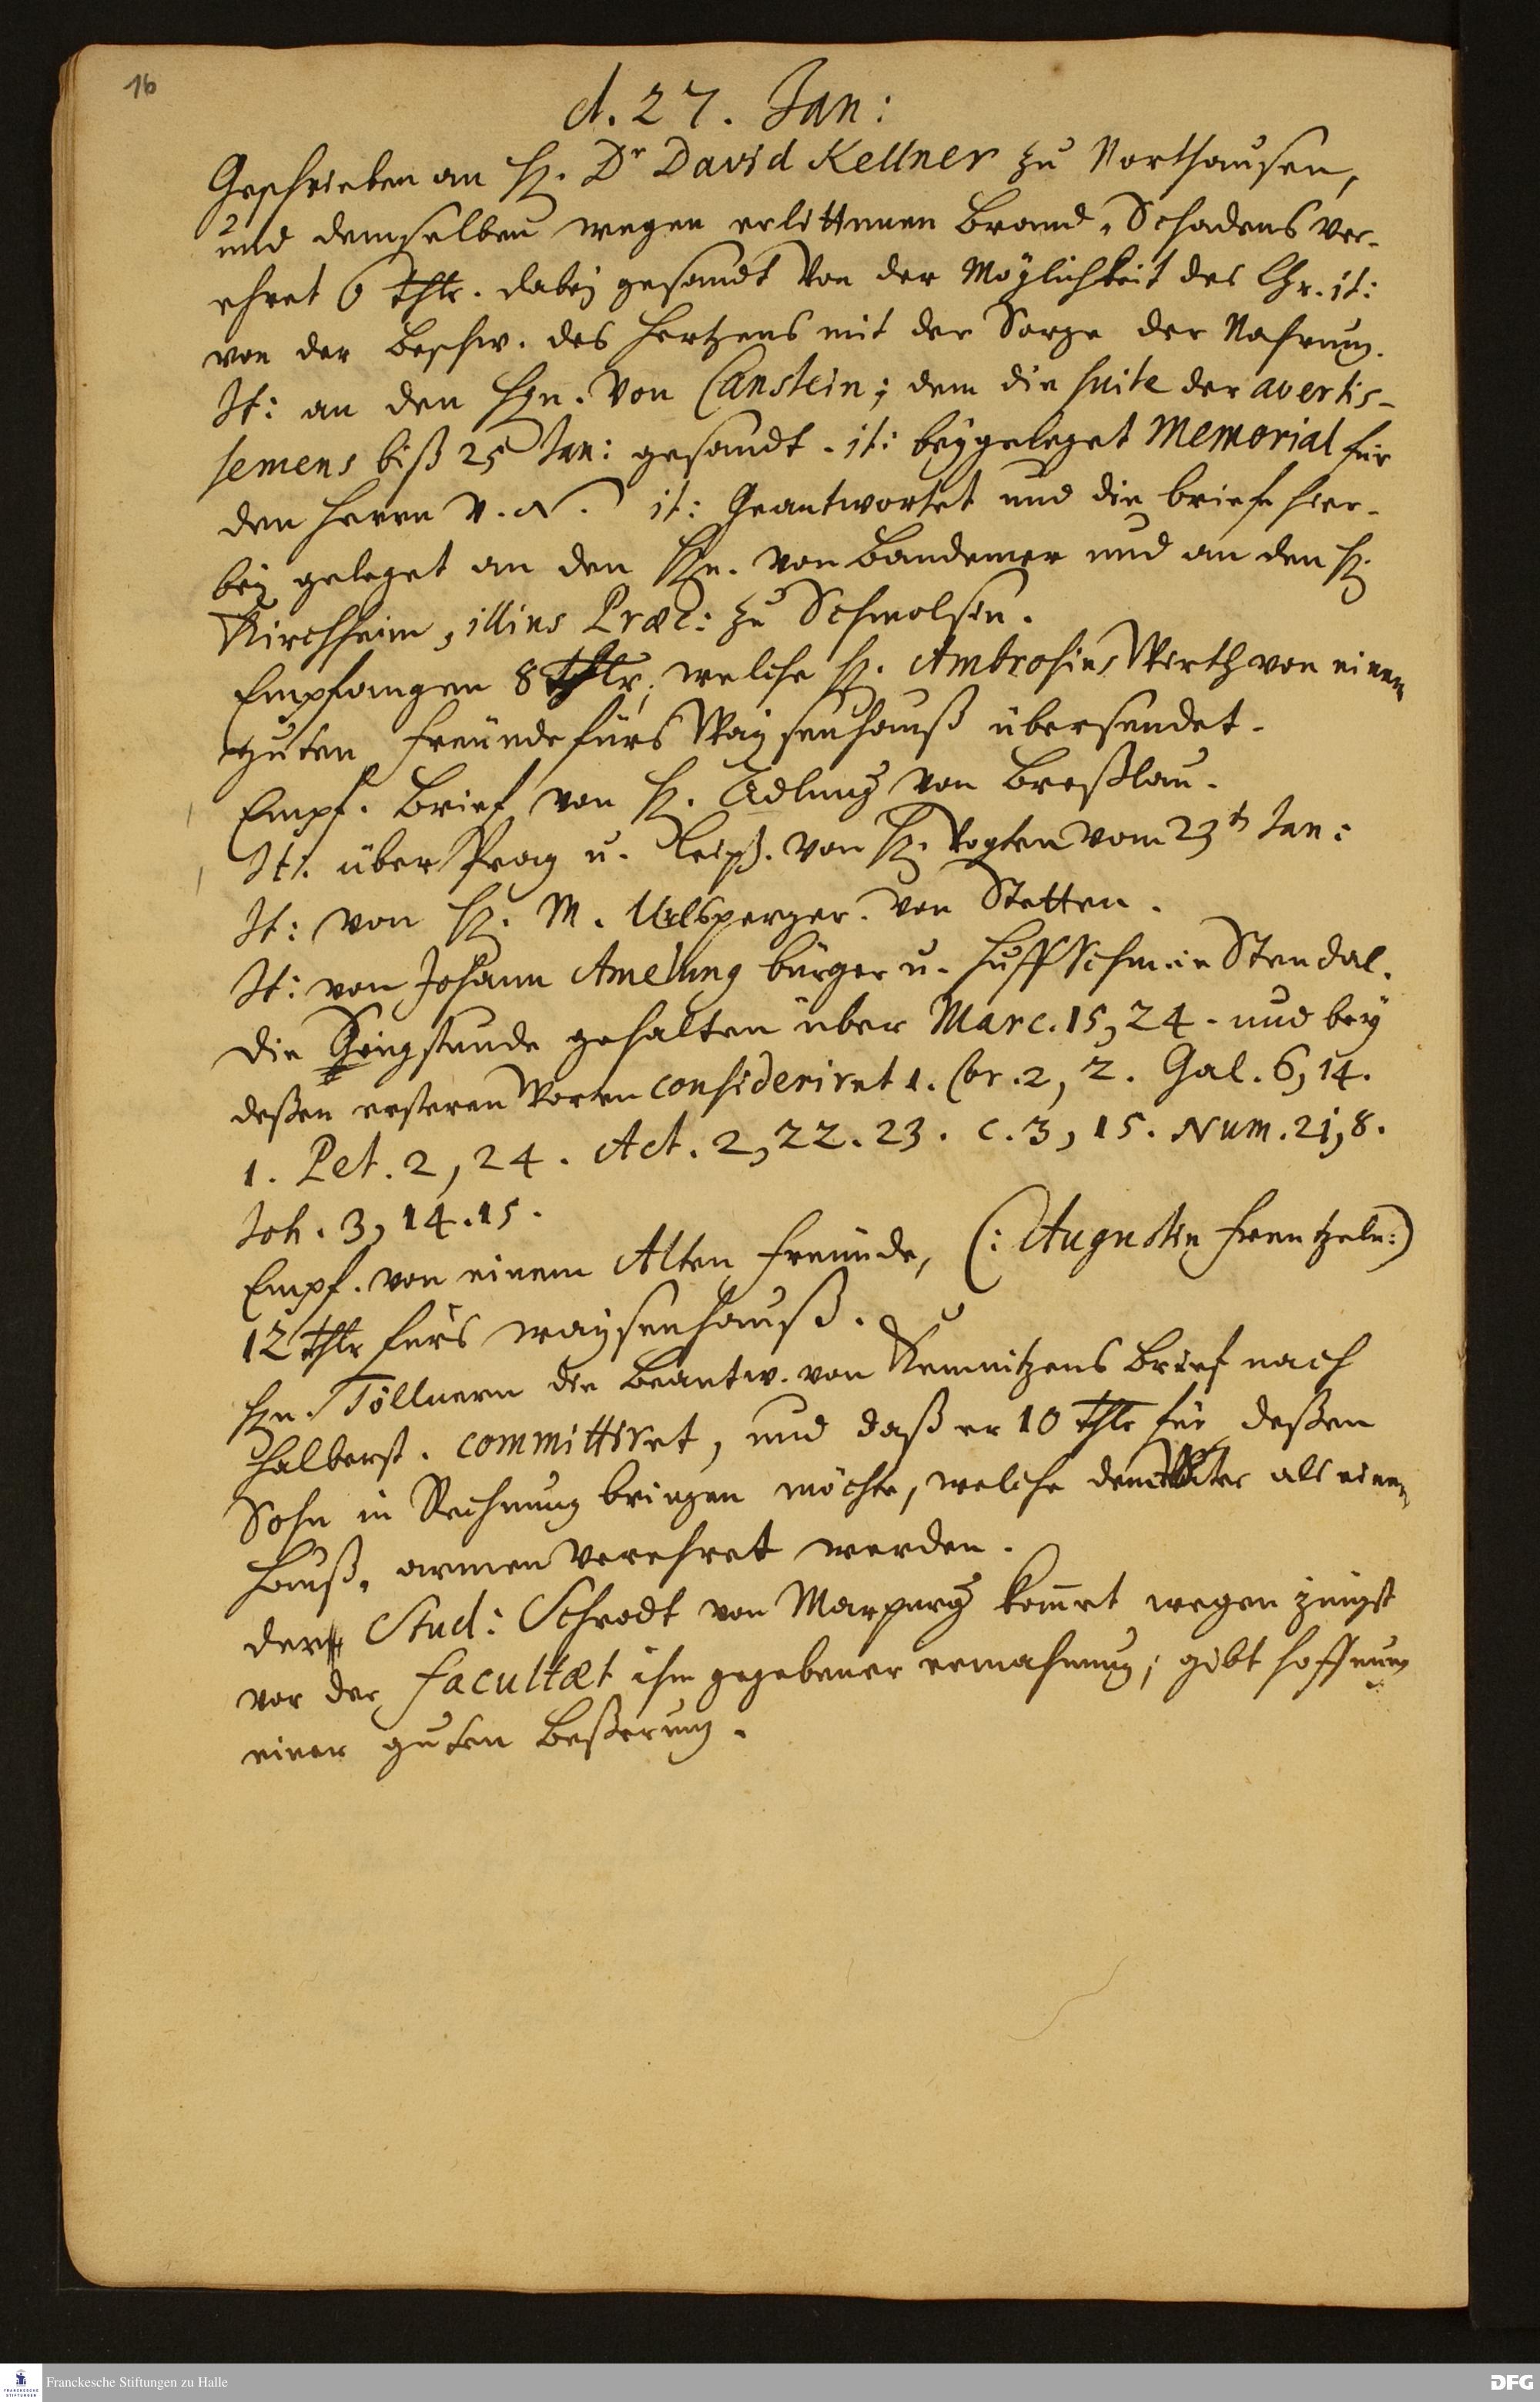 16
d. 27. Jan:
Geschrieben an H. Dr David Kellner zu Northausen,
und demselben wegen erlittenen Brand-Schadens ver-
ehret 6 Thlr. dabey gesandt von der Möglichkeit des Chr. it:
von der Beschw. des Hertzens mit der Sorge der Nahrung.
It: an den Hrn. von Canstein; dem die suite der avertis-
semens biß 25 Jan: gesandt. it: beygeleget Memorial für
den Herrn v. N. it: Geantwortet und die briefe hier-
bey geleget an den Hrn. von Bandemer und an den H.
Kirchheim, illius Præc: zu Schmolsin.
Empfangen 8 Thlr, welche H. Ambrosius Wirth von einem
guten Freunde fürs Waysenhauß übersendet.
Empf. Brief von H. Adlung von Breßlau.
It: über Prag u. Leipz. von H. Vogten vom 23t Jan:
It: von H. M. Urlsperger von Stetten.
It: von Johann Amelung bürger u. Huffschm. in Stendal.
Die Singstunde gehalten über Marc. 15, 24. und bey
deßen ersteren Worten consideriret 1. Cor. 2, 2. Gal. 6, 14.
1. Pet. 2, 24. Act. 2, 22. 23. c. 3, 15. Num. 21, 8.
Joh. 3, 14. 15.
Empf. von einem Alten Freunde, (: Augustin Frentzeln :)
12 Thlr fürs waysenhauß.
Hrn. Töllnern die Beantw. von Kemnitzens Brief nach
Halberst. committiret, und daß er 10 Thlr für deßen
Sohn in Rechnung bringen möchte, welche dem Vater als einem
Hauß-armen verehret werden.
der Stud: Schrodt von Marpurg kom̄et wegen jüngst
vor der Facultæt ihm gegebener ermahnung; gibt hoffnung
einer guten Beßerung.
Franckesche Stiftungen zu Halle
DFG